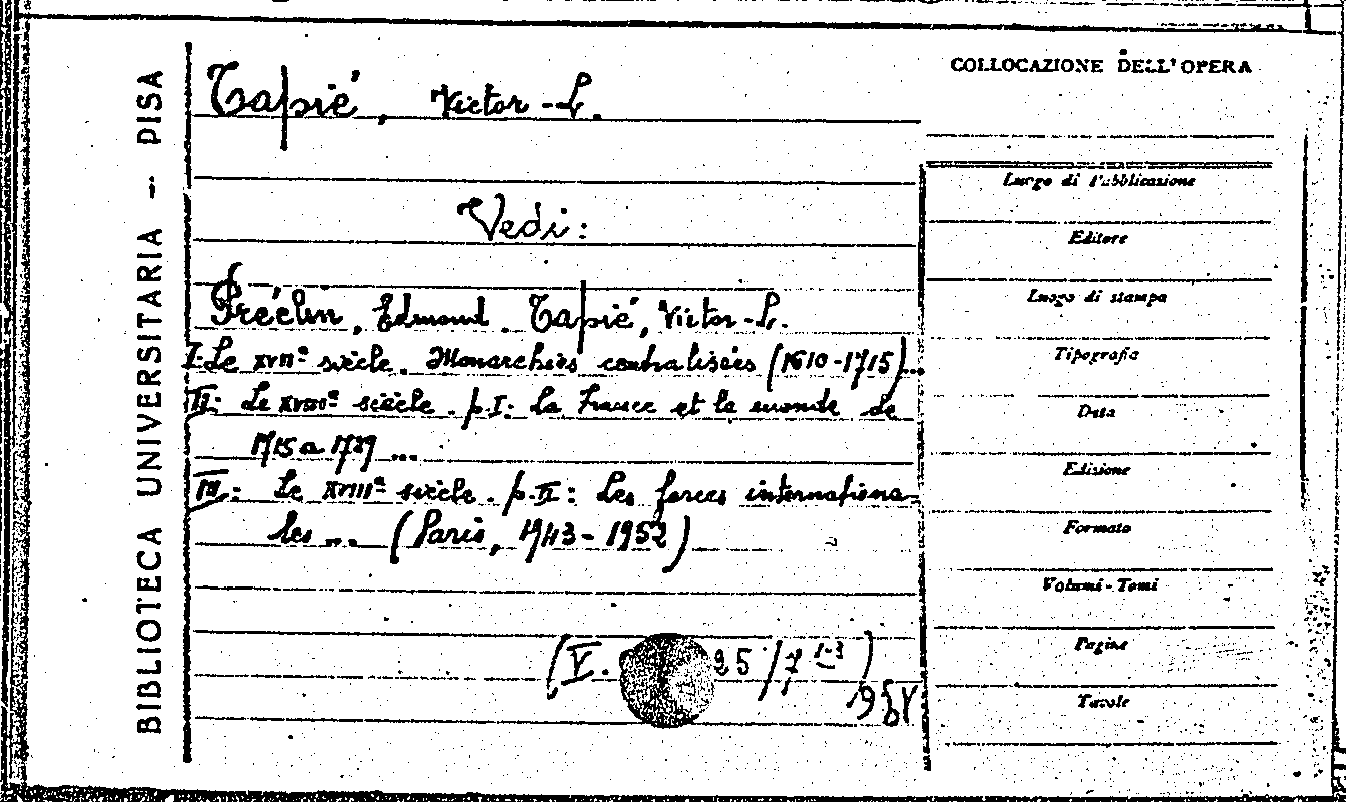 BIBLIOTECA UNIVERSITARIA - PISA
Tapié, Victor-L.
Vedi:
Préclin, Edmond. Tapié, Victor-L.
I: Le XVIIe siècle. Monarchies centralisées (1610-1715)...
II: Le XVIIIe siècle. p.I: La France et le monde de
1715 a 1789 ...
III: Le XVIIIe siècle. p.II: Les forces internationa-
les ... (Paris, 1943-1952)
(V. 25/7 1-3)
COLLOCAZIONE DELL'OPERA
Luogo di Pubblicazione
Editore
Luogo di stampa
Tipografia
Data
Edizione
Formato
Volumi - Tomi
Pagine
Tavole